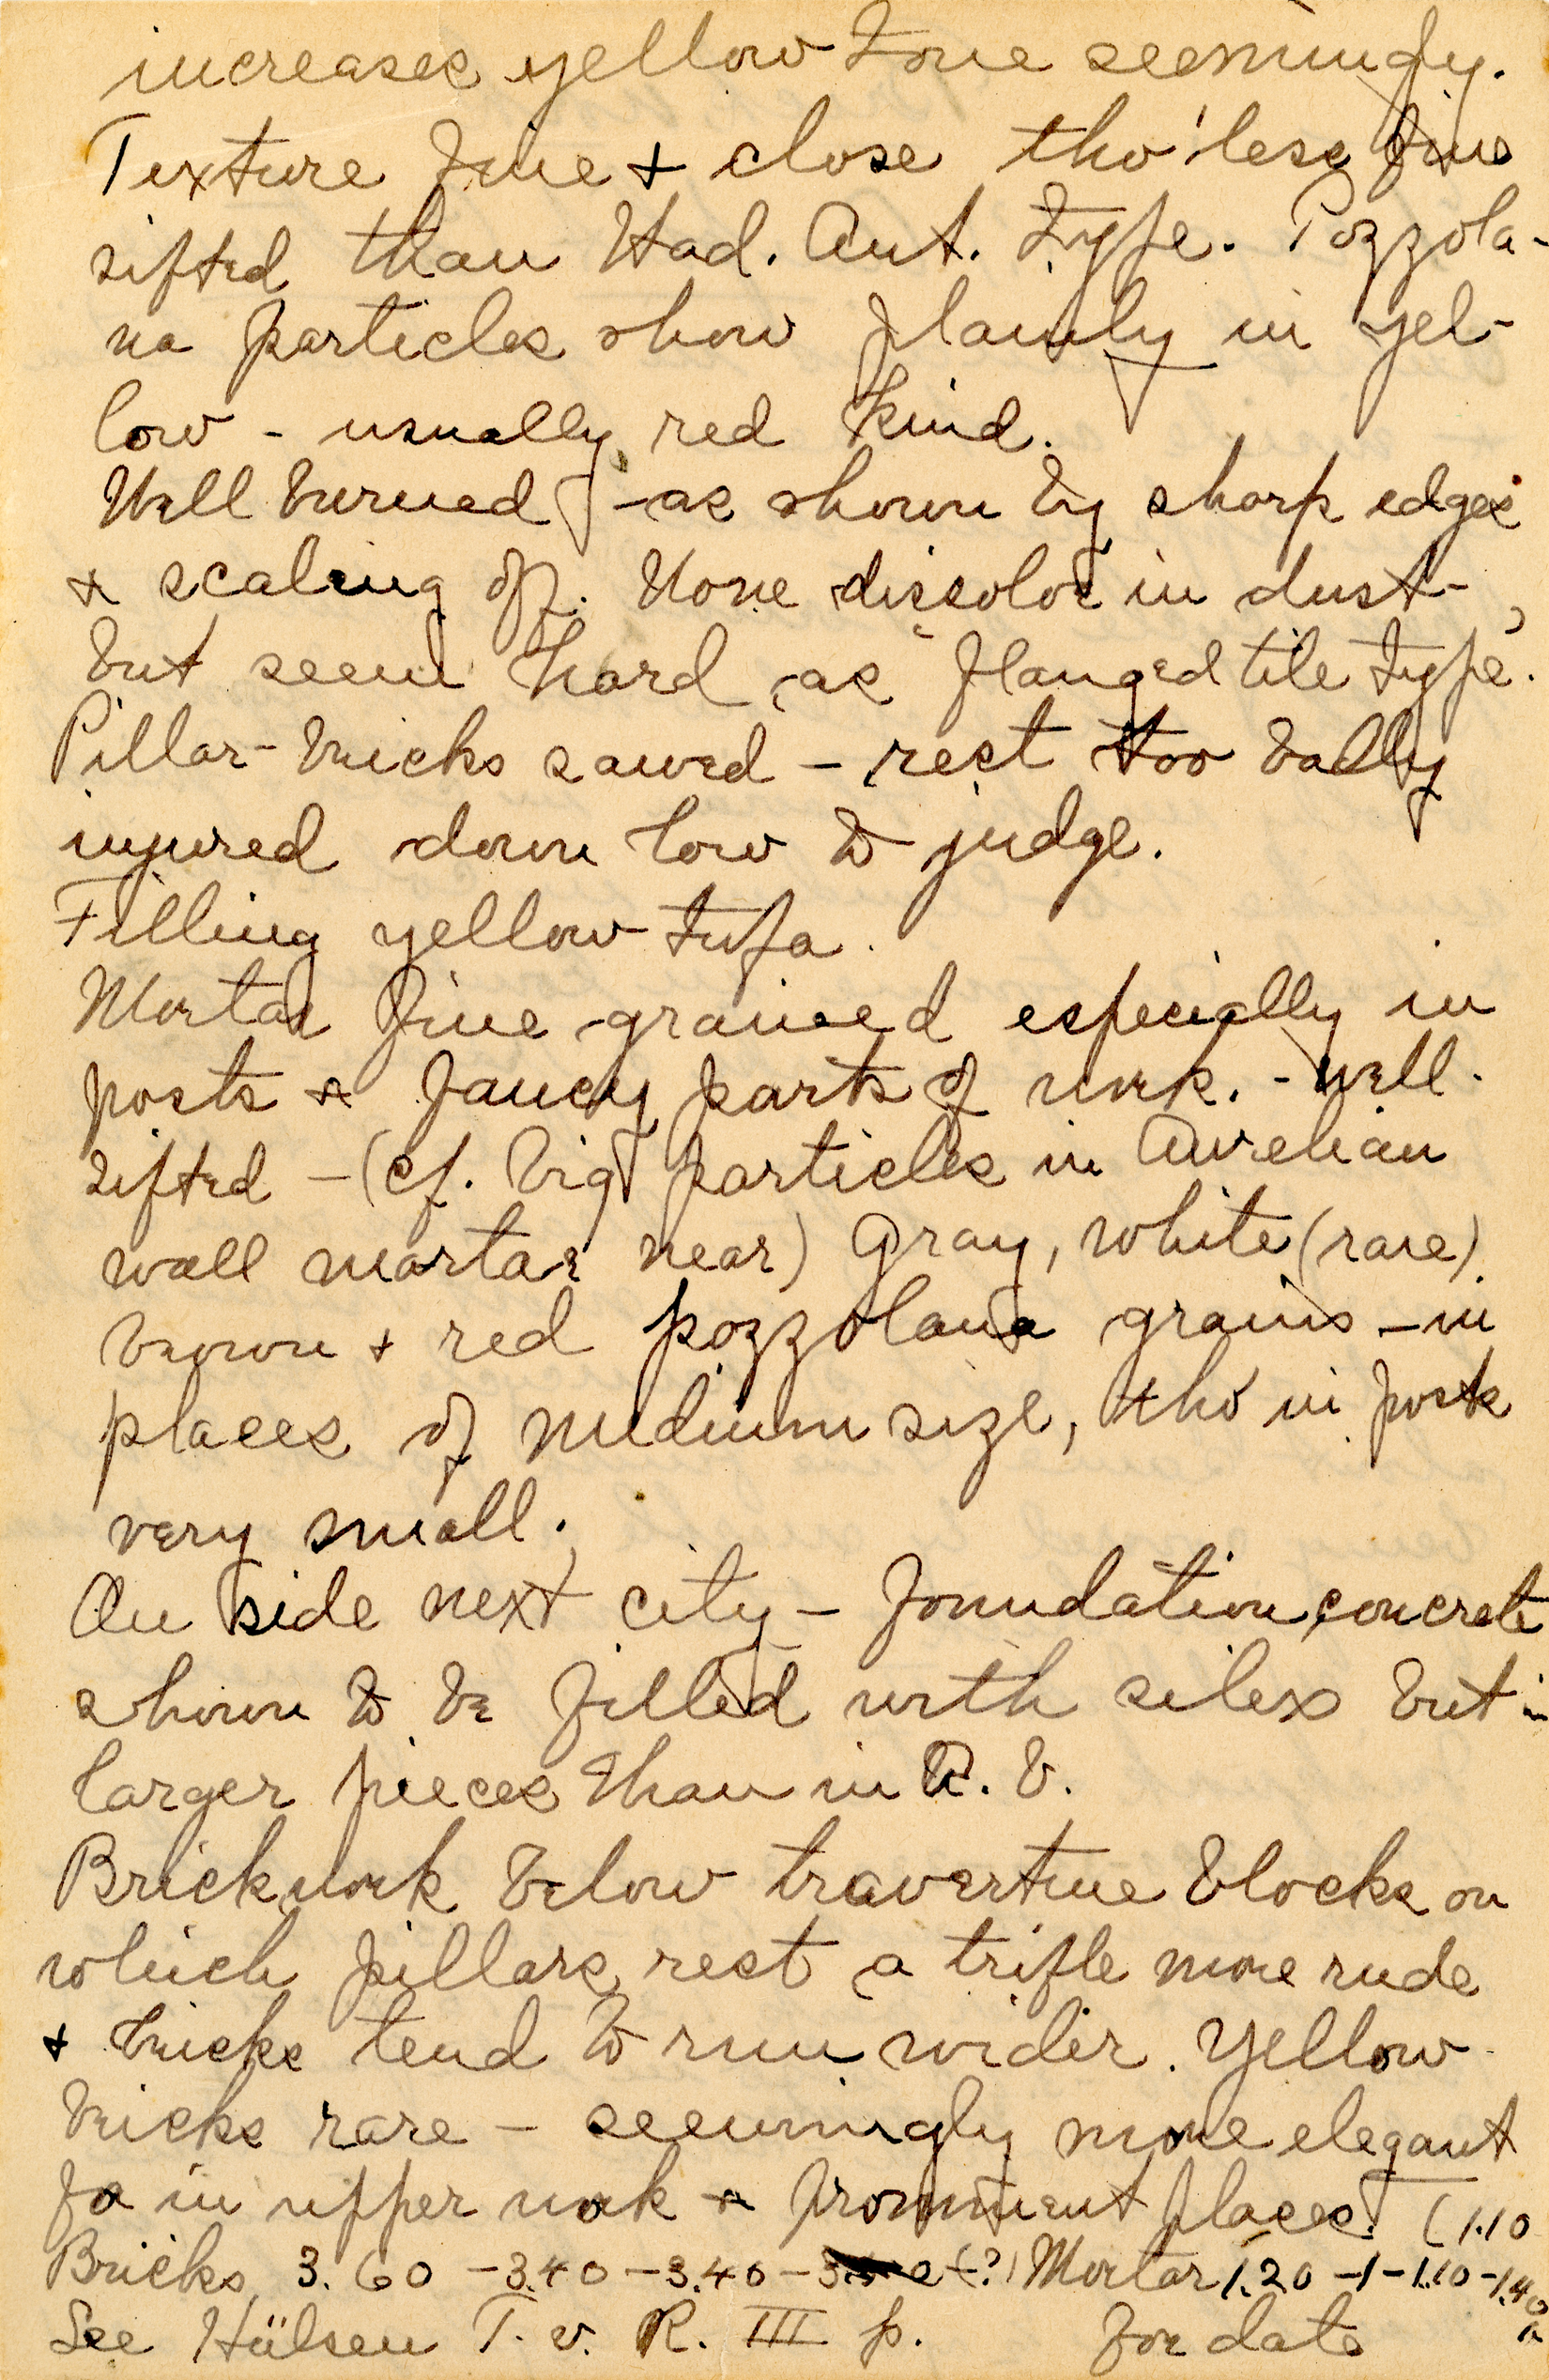 increases yellow tone seemingly.
Texture fine + close tho' less fine
sifted than Had. Ant. type. Pozzola-
na particles show plainly in yel-
low - usually red kind.
Well burned - as shown by sharp edges
+ scaling off. None dissolve in dust -,
but seem hard as "flanged tile type".
Pillar-bricks sawed - rest too badly
injured down low to judge.
Filling yellow tufa.
Mortar fine grained especially in
posts + fancy parts of work. - well
sifted - (cf. big particles in Aurelian
wall mortar near) Gray, white (rare)
brown + red pozzolana grains - in
places of medium size, tho' in posts
very small.
On side next city - foundation concrete
shown to be filled with silex but in
larger pieces than in R. V.
Brickwork below travertine blocks on
which pillars rest a trifle more rude
+ bricks tend to run wider. Yellow
bricks rare - seemingly more elegant
in upper work + prominent places. (1.10
Bricks 3.60 - 3.40 - 3.40 - (?) Mortar 1.20 - 1 - 1.10 - 1.40
See Hülsen T. v. R. III p. for date